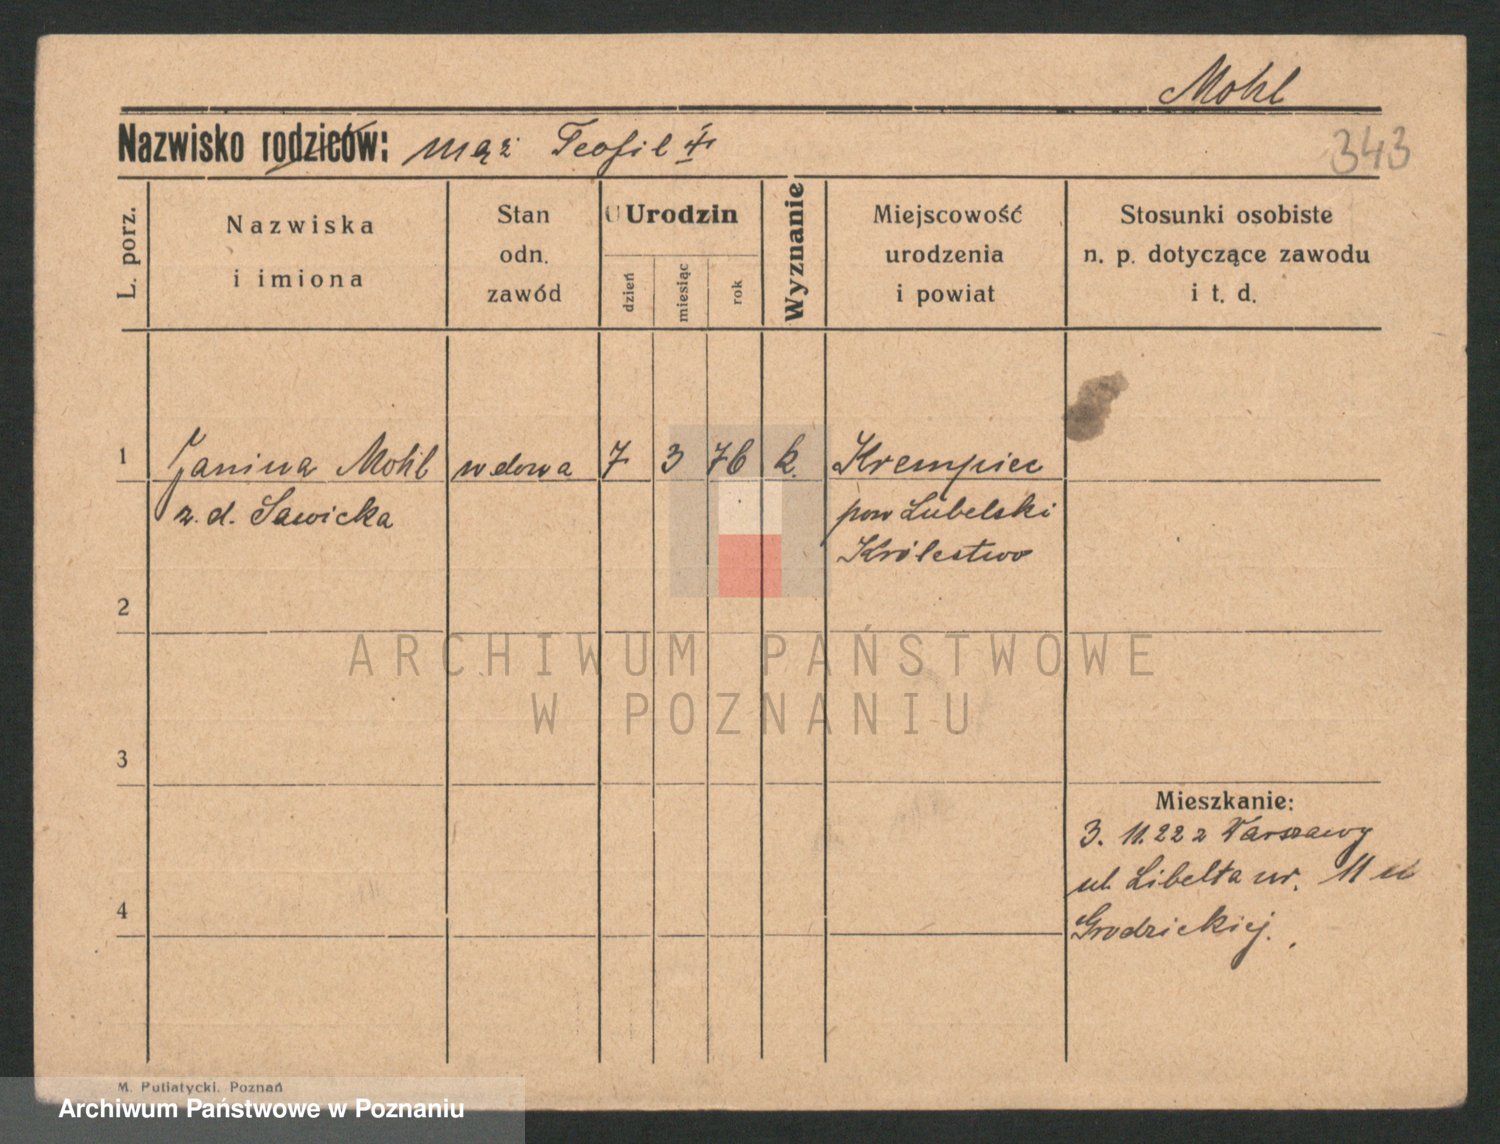 Mohl
Nazwisko rodziców: mąż Teofil †
343
L. porz.
Nazwiska
i imiona
Stan
odn.
zawód
Urodzin
dzień
miesiąc
rok
Wyznanie
Miejscowość
urodzenia
i powiat
Stosunki osobiste
n. p. dotyczące zawodu
i t. d.
1 Janina Mohl wdowa 7 3 76 k. Krempiec
z.d. Sawicka pow Lubelski
Królestwo
2
ARCHIWUM PAŃSTWOWE
W POZNANIU
3
Mieszkanie:
3. 11.22 z Warszawy
ul. Libelta nr. 11 u
4 Grodzickiej.
M. Putiatycki, Poznań
Archiwum Państwowe w Poznaniu